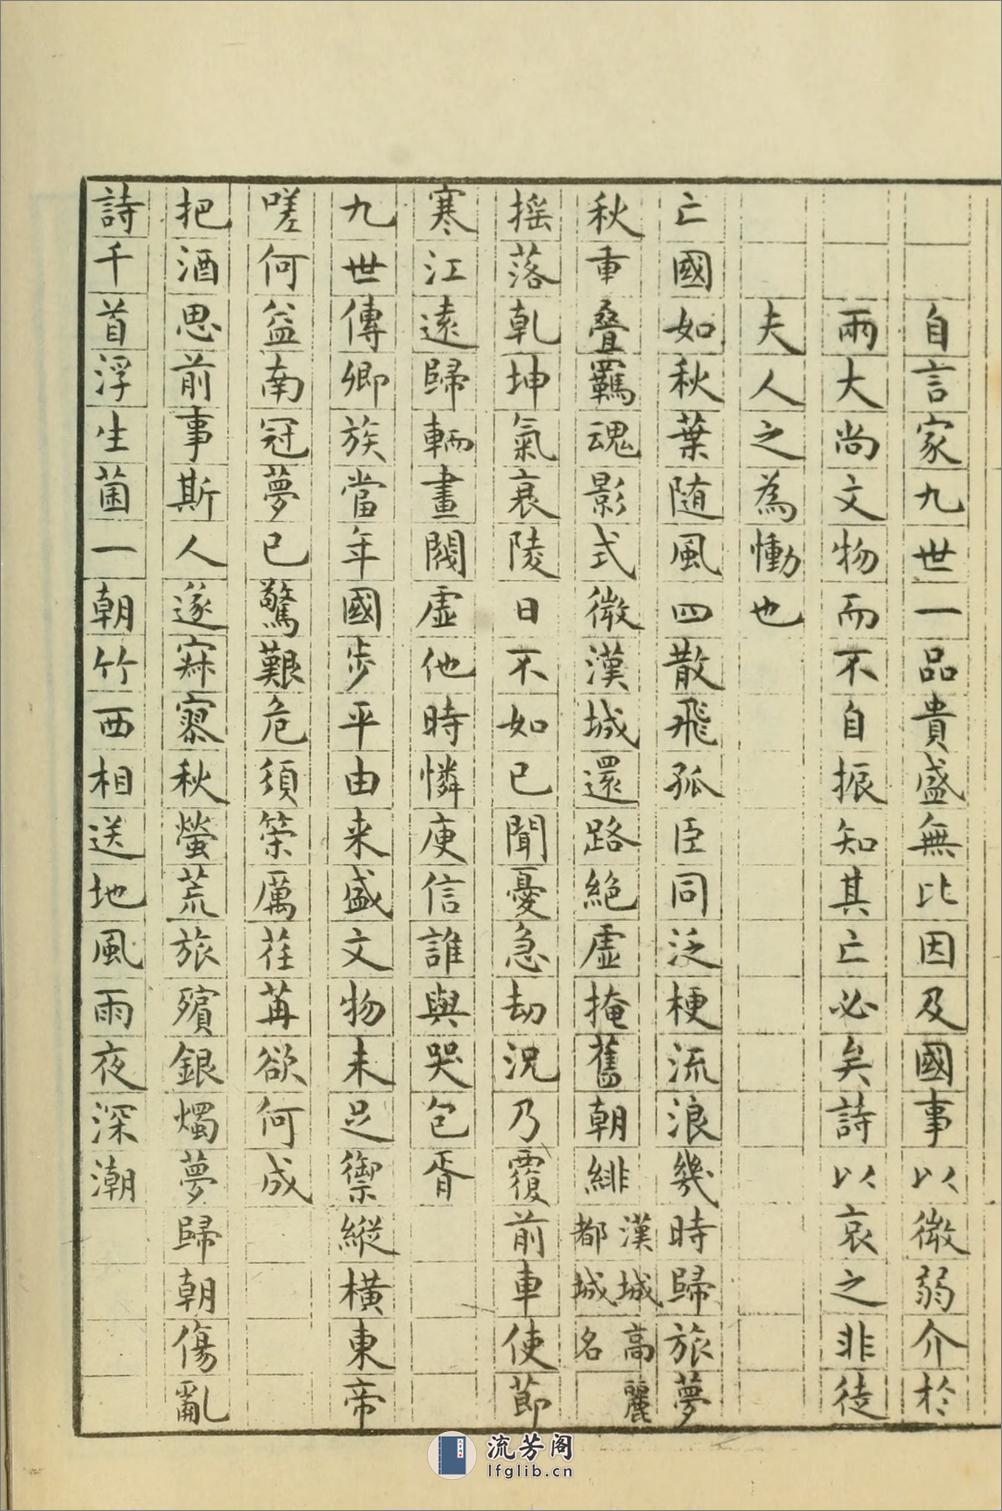 自言家九世一品貴盛無比因及國事以微弱介於
兩大尚文物而不自振知其亡必矣詩以哀之非徒
夫人之為慟也
亡國如秋葉随風四散飛孤臣同泛梗流浪幾時歸旅夢
秋重叠羈魂影式微漢城還路絕虛掩舊朝緋漢城高麗都城名
摇落乹坤氣衰陵日不如已聞憂急刼況乃覆前車使節
寒江遠歸輀畫閣虛他時憐庾信誰與哭包胥
九世傳卿族當年國步平由来盛文物未足禦縱橫東帝
嗟何益南冠夢已驚艱危須策厲荏苒欲何成
把酒思前事斯人遂寂寥秋螢荒旅殯銀燭夢歸朝傷亂
詩千首浮生菌一朝竹西相送地風雨夜深潮
流芳阁
lfglib.cn